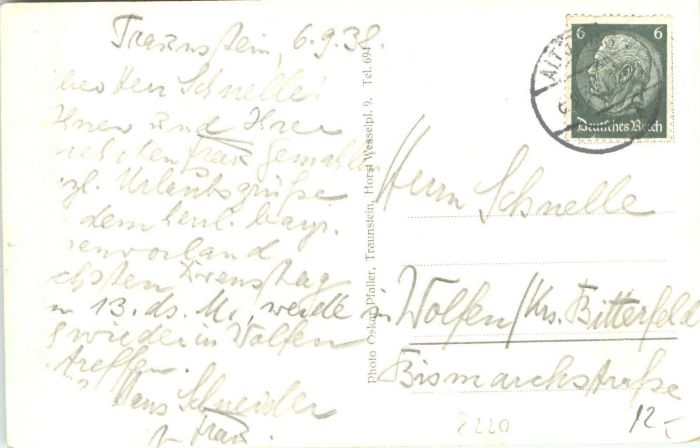 Traunstein, 6.9.38.
Herr Schnelle!
Ihnen und Ihrer
Frau Gemahlin
Urlaubsgrüße
dem herrl. bayr.
envorland
chsten Dienstag
13. ds. M., werde
wieder in Wolfen
treffen.
Hans Schneider
u. Frau.
Photo Oskar Pfaller, Traunstein, Horst Wesselpl. 9. Tel. 694
6 6
Deutsches Reich
Herrn Schnelle
in Wolfen/Krs. Bitterfeld
Bismarckstraße
8220
12,-